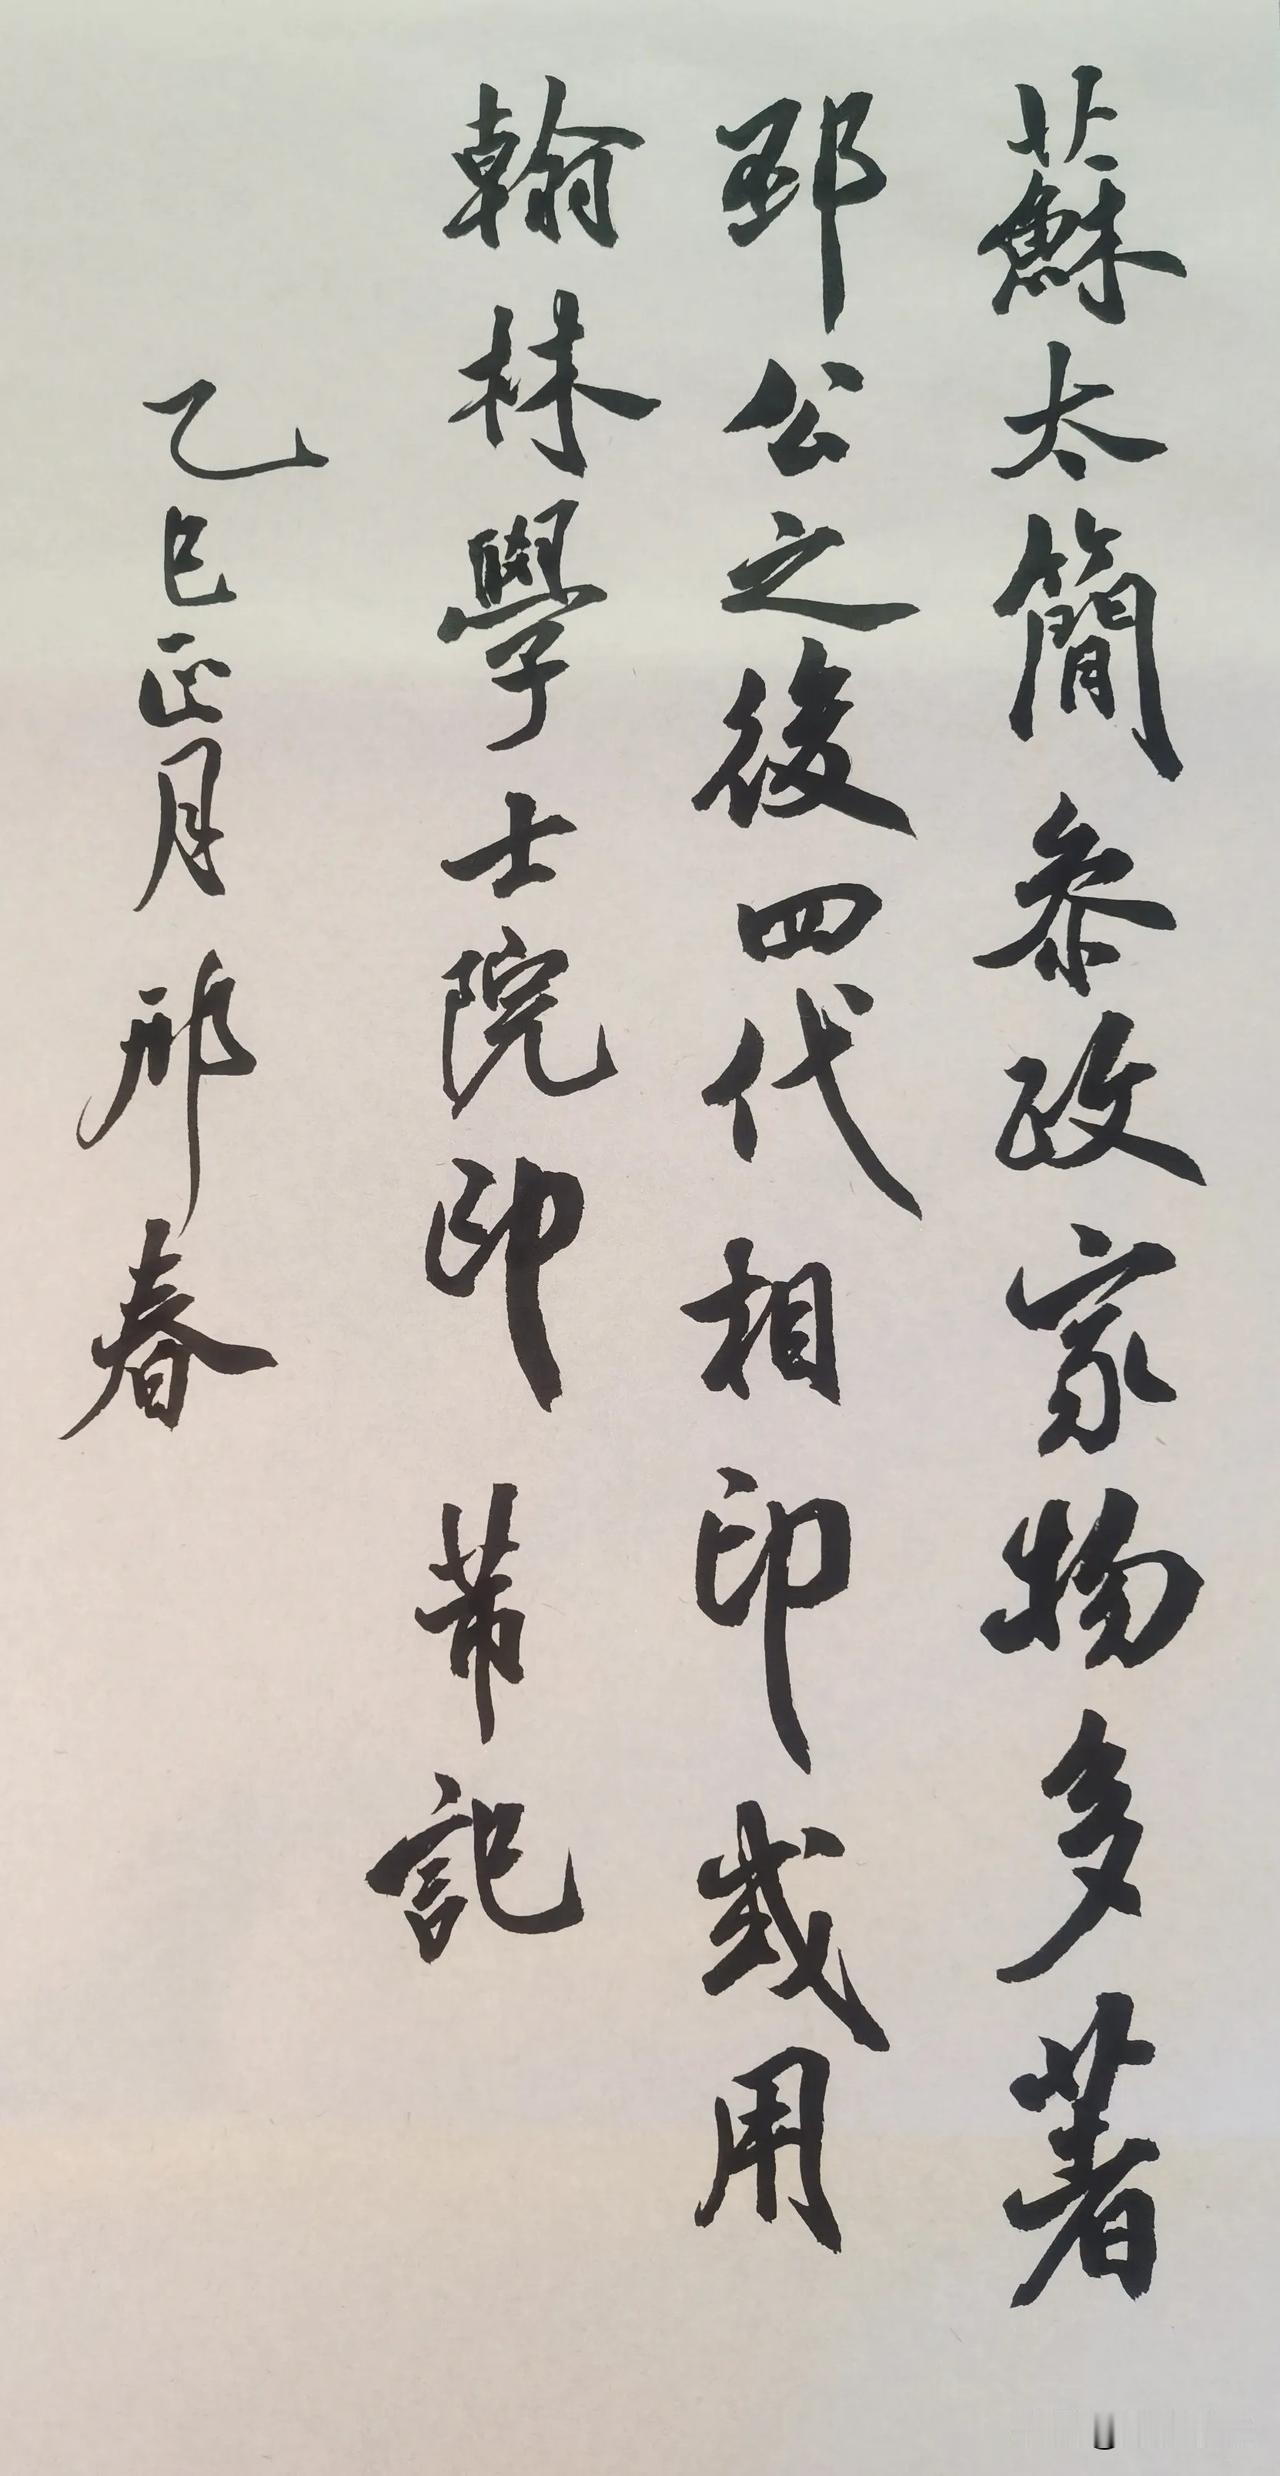 蘇太簡参政家物多著
邳公之後四代相印或用
翰林學士院印 芾記
乙巳正月邢春